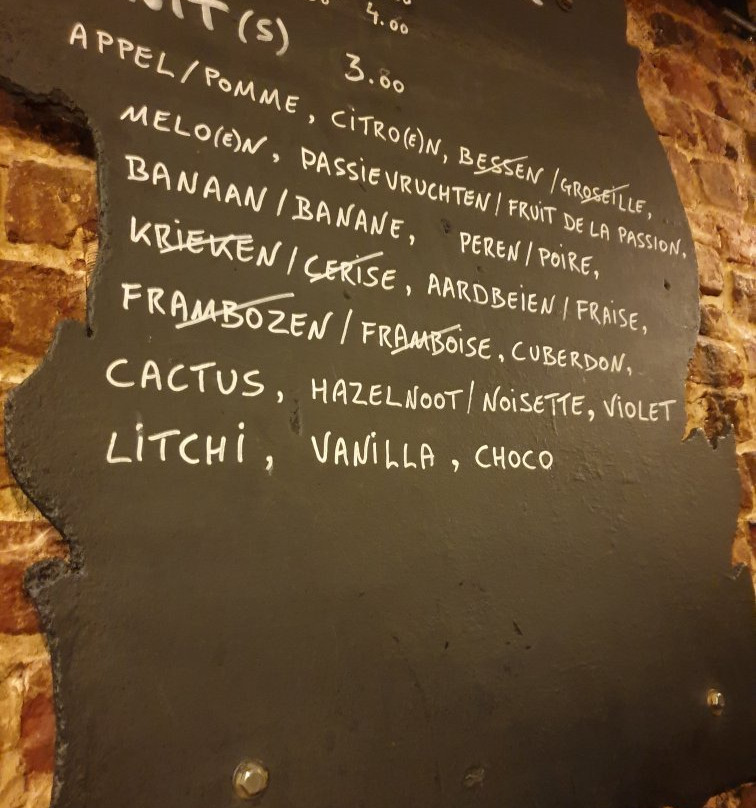 4.00
(S) 3.00
APPEL/POMME, CiTRO(E)N, BESSEN/GROSEiLLE,
MELO(E)N, PASSiEVRUCHTEN/FRUiT DE LA PASSiON,
BANAAN/BANANE, PEREN/POiRE,
KRiEKEN/CERiSE, AARDBEiEN/FRAiSE,
FRAMBOZEN/FRAMBOiSE, CUBERDON,
CACTUS, HAZELNOOT/NOiSETTE, ViOLET
LiTCHi, VANiLLA, CHOCO